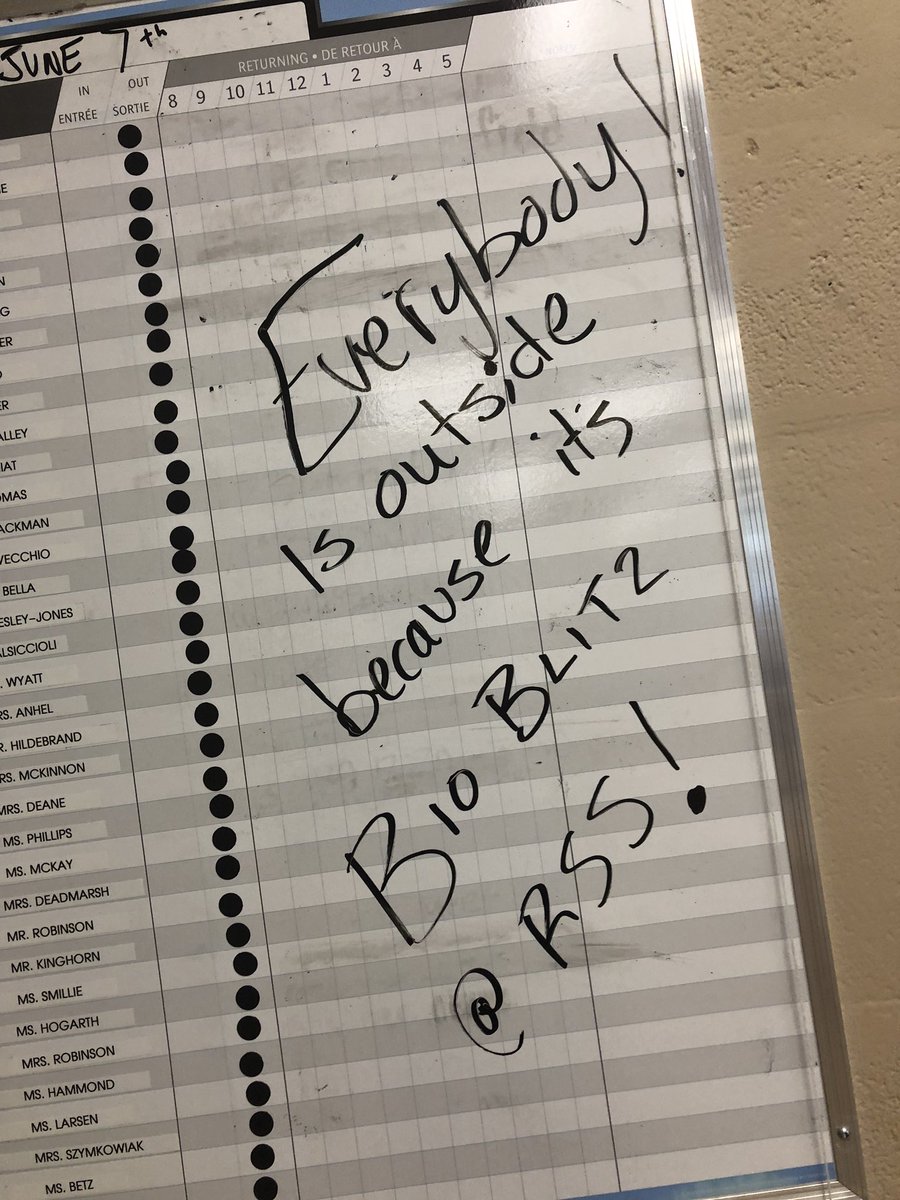 JUNE 7th
RETURNING • DE RETOUR À
IN OUT
ENTRÉE SORTIE 8 9 10 11 12 1 2 3 4 5
Everybody!
Is outside
because it's
BIO BLITZ
@ RSS!
ALLEY
IAT
OMAS
ACKMAN
VECCHIO
BELLA
ESLEY-JONES
ALSICCIOLI
. WYATT
RS. ANHEL
R. HILDEBRAND
RS. MCKINNON
MRS. DEANE
MS. PHILLIPS
MS. MCKAY
MRS. DEADMARSH
MR. ROBINSON
MR. KINGHORN
MS. SMILLIE
MS. HOGARTH
MRS. ROBINSON
MS. HAMMOND
MS. LARSEN
MRS. SZYMKOWIAK
MS. BETZ